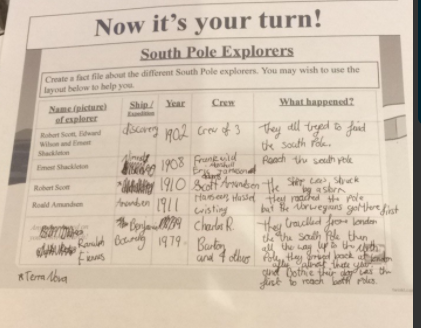 Now it's your turn!
South Pole Explorers
Create a fact file about the different South Pole explorers. You may wish to use the
layout below to help you.
Name (picture) of explorer
Ship / Expedition
Year
Crew
What happened?
Robert Scott, Edward
Wilson and Ernest
Shackleton
discovery
1902
Crew of 3
They all tryed to find
the south Pole.
Ernest Shackleton
Nimrod
1908
Frank wild
Reach the south pole
Robert Scott
1910
Scott
The Ship was struck
by a storm
Roald Amundsen
1911
they reached the Pole
but the Norweyians got there first
The Benjamin
Bowring
1979
Charles R.
Burton
and 4 others
They travelled from london
the the South Pole then
all the way up to the
Pole, they arrived back at london
Ranulph
Fiennes
and Bothie their dog was the
first to reach both Poles.
*Terra Nova